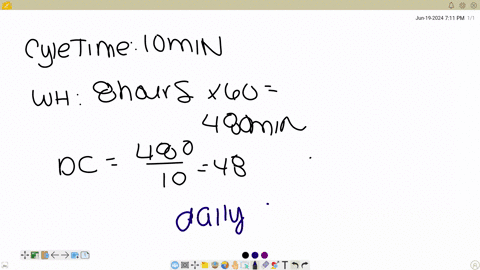 Jun-19-2024 7:11 PM 1/1
CycleTime: 10min
WH: 8hours x60=
480min
DC = 480/10 = 48
daily